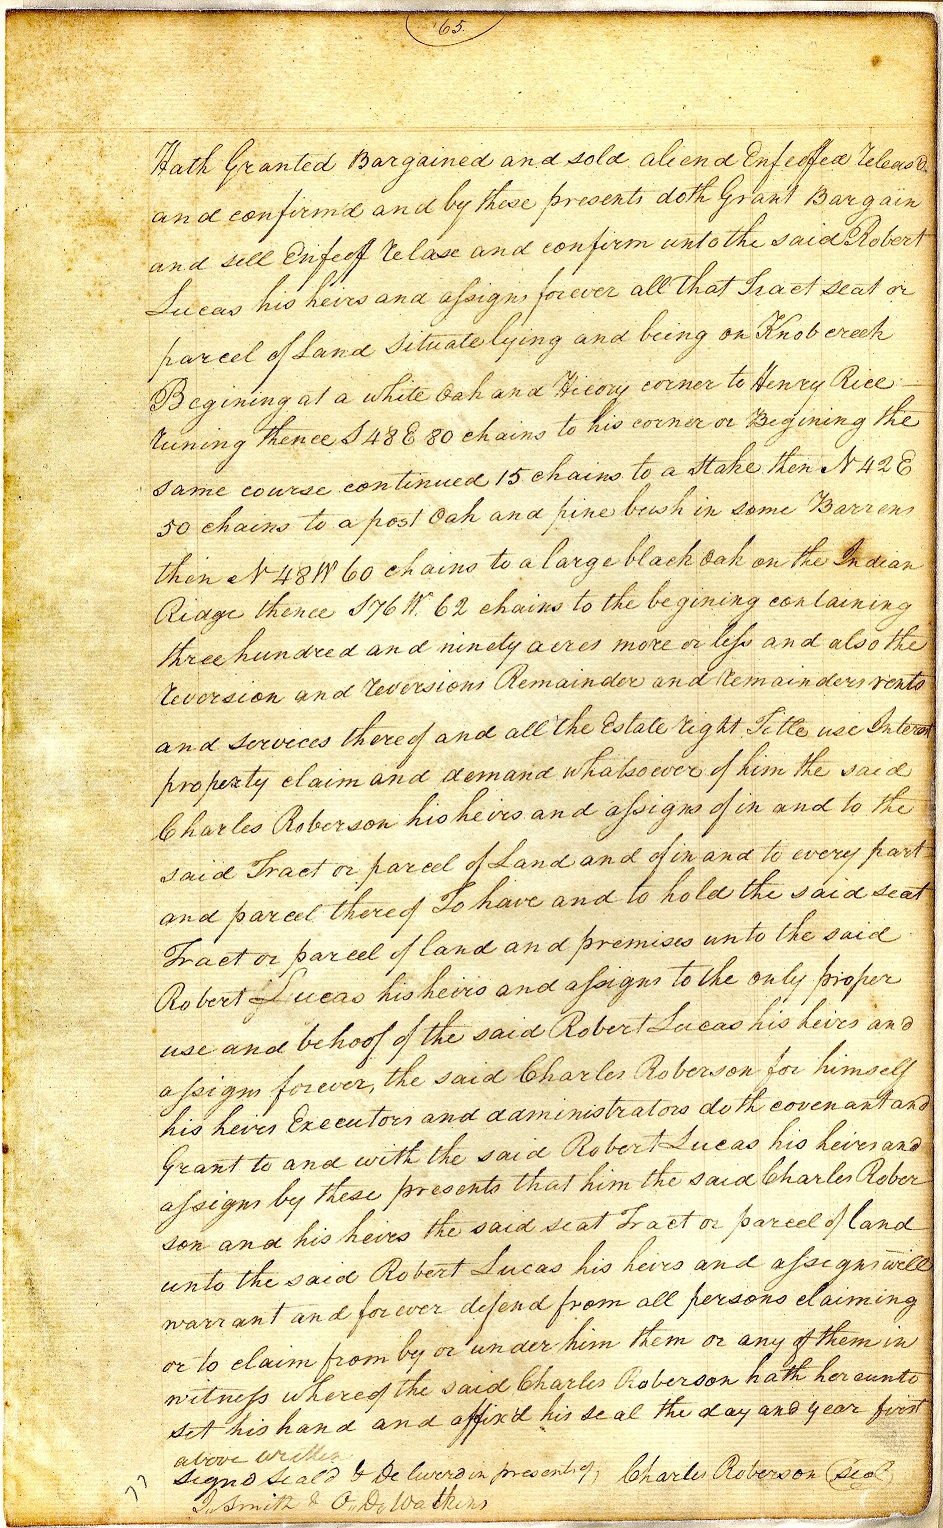 65.
Hath Granted Bargained and sold aliend Enfeoffed releas'd
and confirmd and by these presents doth Grant Bargain
and sell Enfeoff Relase and confirm unto the said Robert
Lucas his heirs and assigns forever all that Tract seat or
parcel of Land Situate lying and being on Knob creek
Begining at a white Oak and Hicory corner to Henry Rice
runing thence S 48 E 80 chains to his corner or Begining the
same course continued 15 chains to a stake then N 42 E
50 chains to a post Oak and pine bush in some Barrens
then N 48 W 60 chains to a large black Oak on the Indian
Ridge thence S 76 W. 62 chains to the begining containing
three hundred and ninety acres more or less and also the
reversion and reversions Remainder and remainders rents
and services thereof and all the Estate right Title use Interest
property claim and demand whatsoever of him the said
Charles Roberson his heirs and assigns of in and to the
said Tract or parcel of Land and of in and to every part
and parcel thereof To have and to hold the said seat
Tract or parcel of land and premises unto the said
Robert Lucas his heirs and assigns to the only proper
use and behoof of the said Robert Lucas his heirs and
assigns forever, the said Charles Roberson for himself
his heirs Executors and administrators doth covenant and
Grant to and with the said Robert Lucas his heirs and
assigns by these presents that him the said Charles Rober
son and his heirs the said seat Tract or parcel of land
unto the said Robert Lucas his heirs and assigns will
warrant and forever defend from all persons claiming
or to claim from by or under him them or any of them in
witness whereof the said Charles Roberson hath hereunto
set his hand and affix'd his seal the day and year first
above written
Signd Seald & Deliverd in presents of, Charles Roberson (Seal)
J. Smith & O. D. Watkins